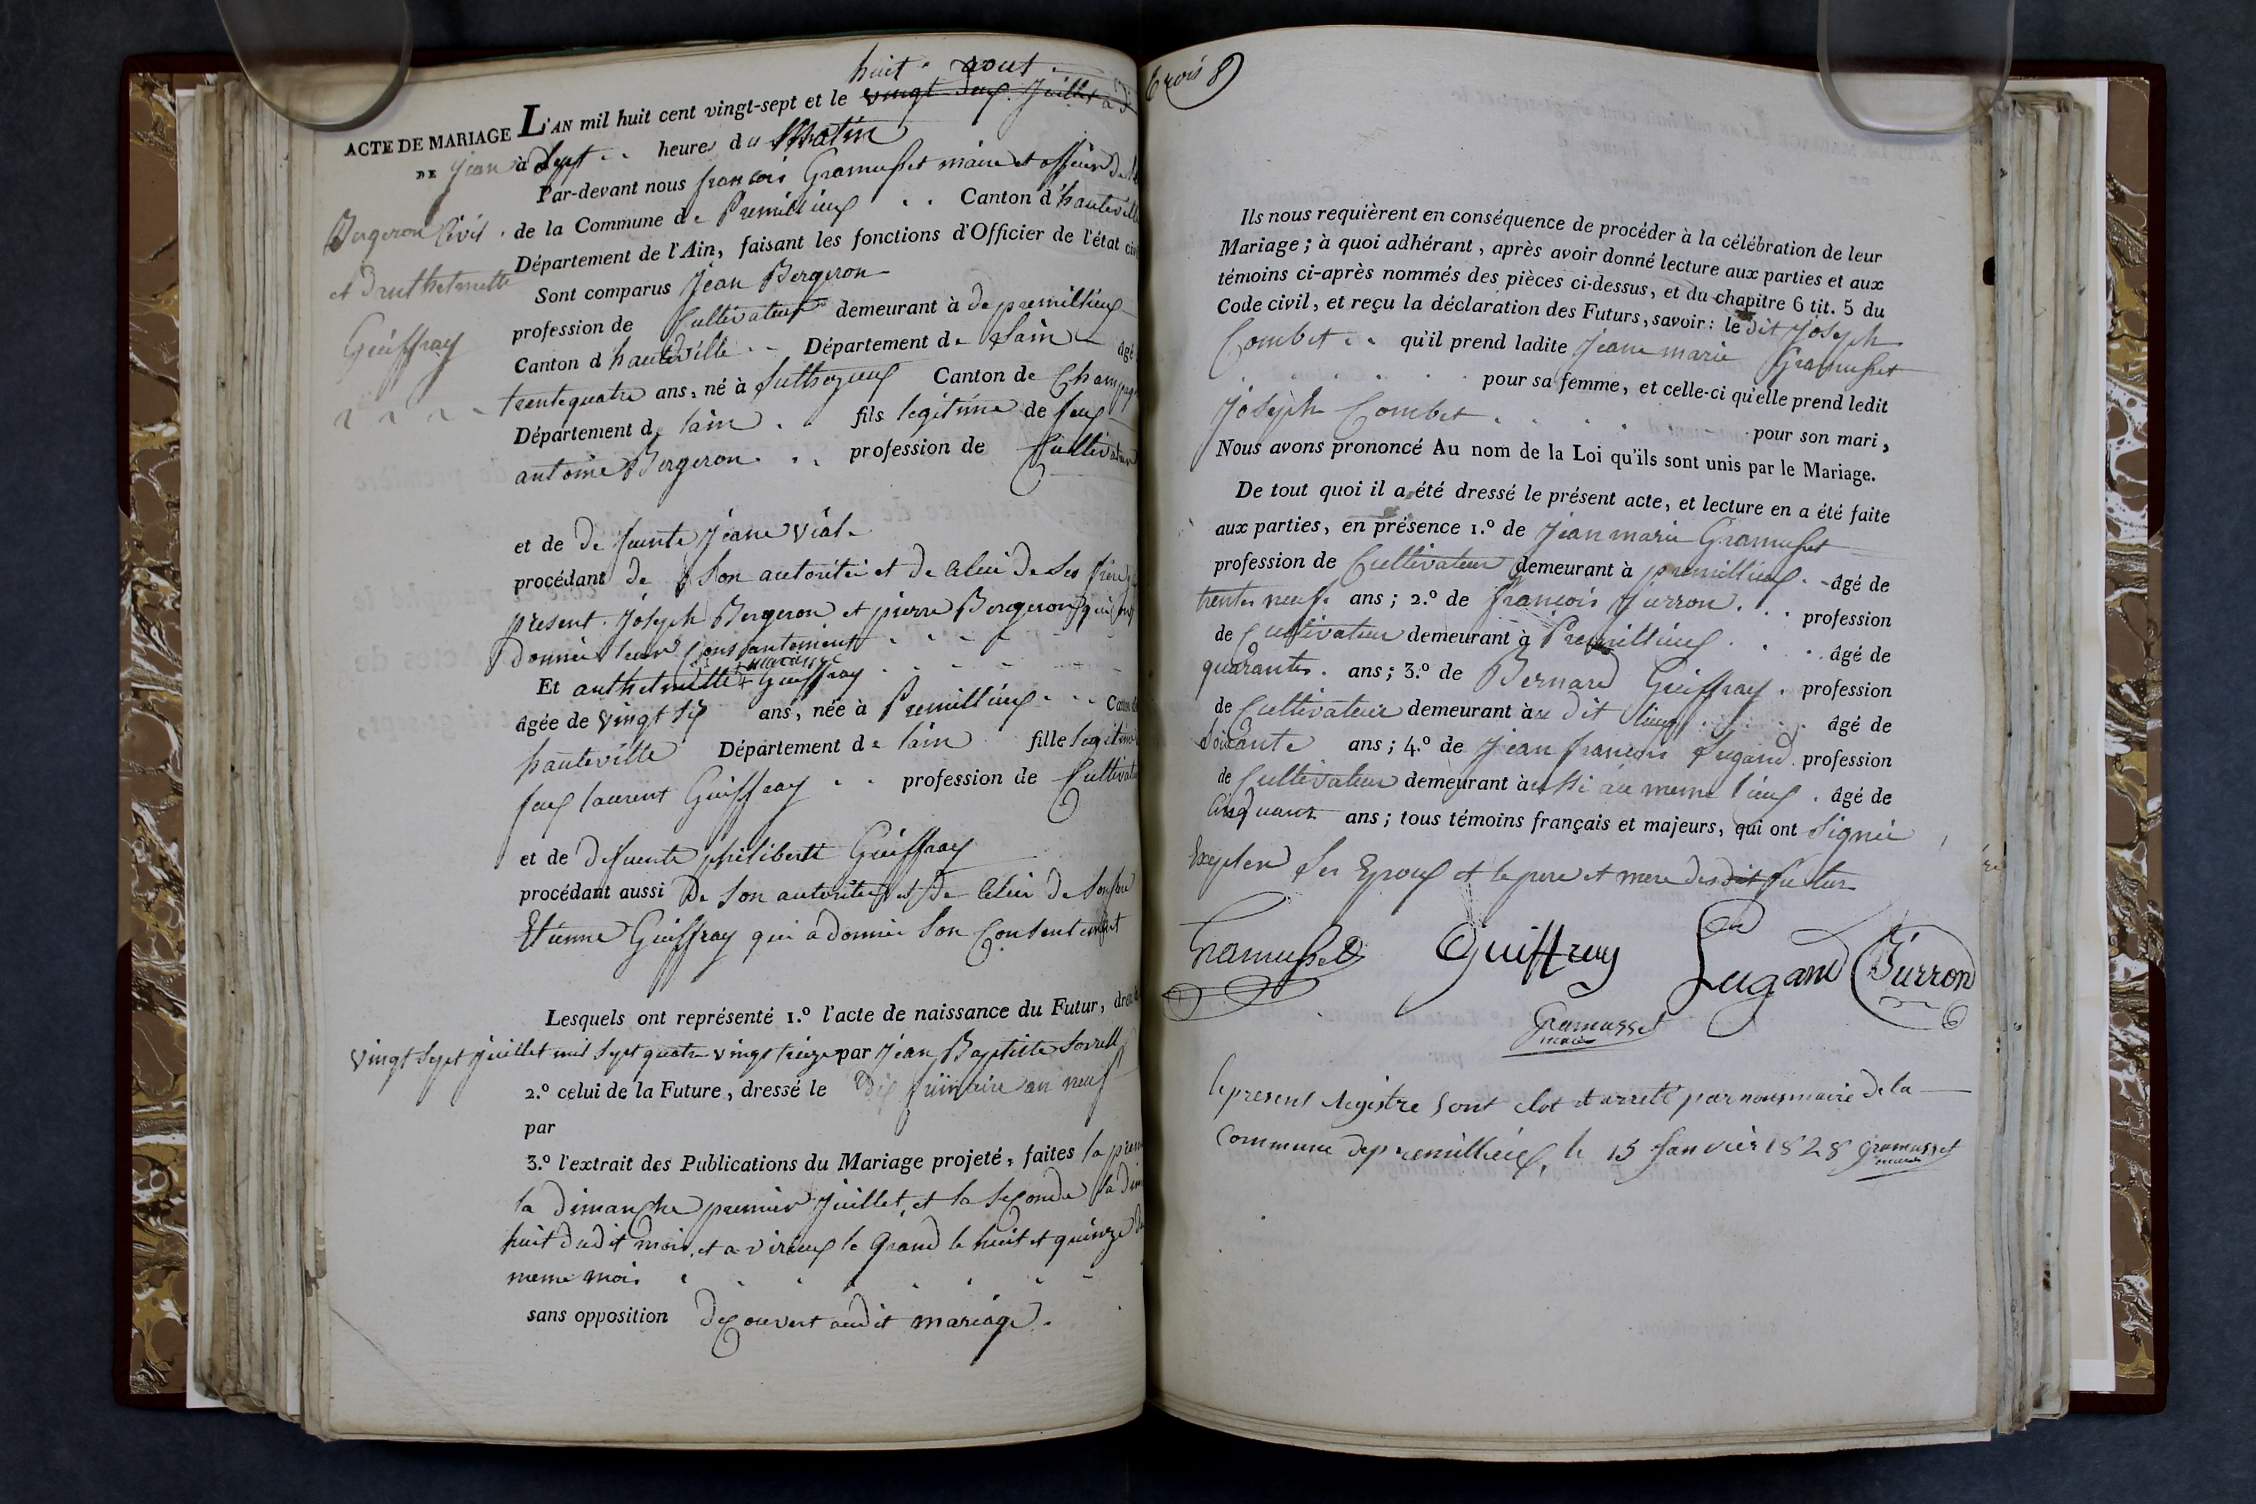 huit . aout .
L'AN mil huit cent vingt-sept et le vingt deux. Juillet a d
ACTE DE MARIAGE
DE jean
à Sept .. heures du Matin
Par-devant nous francois Gramusset maire et officier de
Bergeron Civil . de la Commune de Premillieux .. Canton d'hauteville
Département de l'Ain, faisant les fonctions d'Officier de l'état civ
et danthelmette
Sont comparus Jean Bergeron
Guiffray
profession de Cultivateur demeurant à de premillieux
Canton d'hauteville .. Département de Lain âgé
trente quatre ans, né à Suthezieux Canton de Champag
Département de lain . fils legitime de feux
antoine Bergeron . . profession de Cultivateur
et de de funte Jeane Viale
procédant de Son autoritéi et de Celui de Ses frere
present . Joseph Bergeron et pierre Bergeron qui ont
donnéi leur Consantement
Et anthelmette + Guiffray
âgée de vingt Six ans, née à Premillieux . . Canton
hauteville Département de lain fille legitime
feux laurent Guiffray . . profession de Cultivate
et de defuente philiberte Guiffray
procédant aussi De Son autorite et De Celui de Son
Etienne Guiffray qui a donnéi Son Consentement
Lesquels ont représenté 1.º l'acte de naissance du Futur, dres
vingt Sept juillet mil Sept quatre vingt treize par Jean Baptiste
2.º celui de la Future, dressé le Dix frimaire an neuf
par
3.º l'extrait des Publications du Mariage projeté, faites la prem
la dimanche premier Juillet, et la Seconde la dim
huit dudit mois, et a virieux le Grand le huit et quinze du
meme mois
sans opposition decouvert audit mariage .
trois 8
Ils nous requièrent en conséquence de procéder à la célébration de leur
Mariage; à quoi adhérant, après avoir donné lecture aux parties et aux
témoins ci-après nommés des pièces ci-dessus, et du chapitre 6 tit. 5 du
Code civil, et reçu la déclaration des Futurs, savoir: le dit Joseph
Combet .. qu'il prend ladite Jeane marie Gramusset
pour sa femme, et celle-ci qu'elle prend ledit
Joseph Combet . . . . pour son mari,
Nous avons prononcé Au nom de la Loi qu'ils sont unis par le Mariage.
De tout quoi il a été dressé le présent acte, et lecture en a été faite
aux parties, en présence 1.º de Jean marie Gramusset
profession de Cultivateur demeurant à premillieux . âgé de
trente neuf. ans; 2.º de francois Jurron . . profession
de Cultivateur demeurant à Premillieux . . . âgé de
quarante . ans; 3.º de Bernard Guiffray . profession
de Cultivateur demeurant àu dit lieux . . . . âgé de
Soixante ans; 4.º de Jean francois Lugand . profession
de Cultivateur demeurant àussi au meme lieux . âgé de
Cinquante ans; tous témoins français et majeurs, qui ont Signéi
Ses Epoux et le pere et mere des dit futur
Gramusset Guiffray Lugand Jurron
Gramusset
maire
le present Registre Sont clot et arreté par nous maire de la
Commune de premillieux, le 15 Janvier 1828 Gramusset
maire